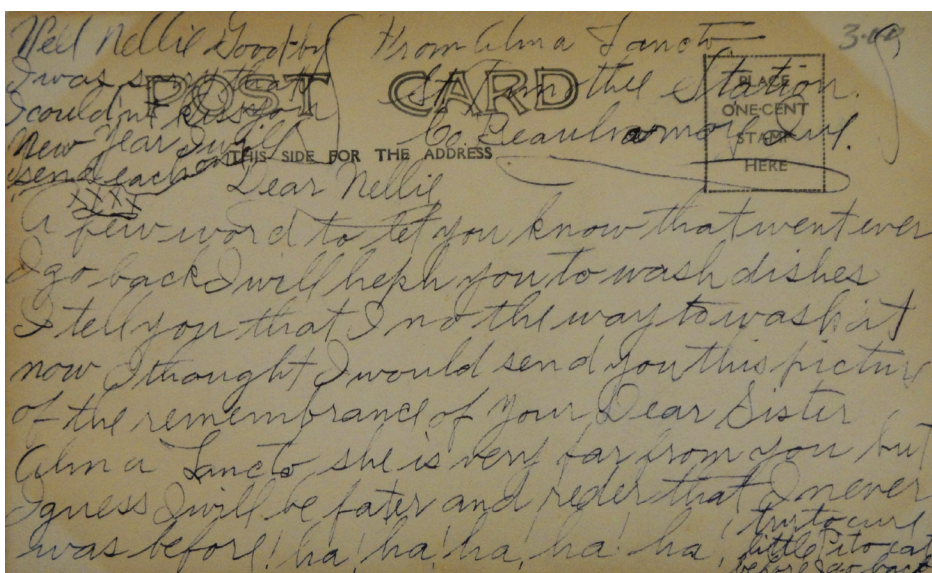 Well Nellie Goodby
I was sorry that
I couldn't kiss you
New Year I will
send each one
XXXX
From Alma Lancto
St Timothee Station.
Co. Beauharnois
3.00
POST CARD
THIS SIDE FOR THE ADDRESS
PLACE
ONE-CENT
STAMP
HERE
Dear Nellie
A few word to let you know that went ever
I go back I will heph you to wash dishes
I tell you that I no the way to wash it
now I thought I would send you this picture
of the remembrance of your Dear Sister
Alma Lancto she is very far from you but
I guess I will be fater and reder that I never
was before! ha! ha! ha! ha! ha
try to cure
little to eat
before I go back